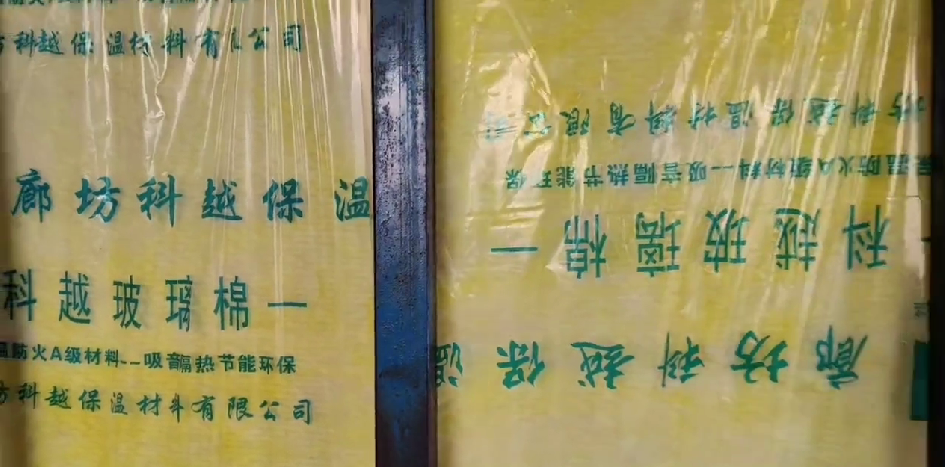 科越保温材料有公司
廊坊科越保温
科越玻璃棉一
温防火A级材料--吸音隔热节能环保
坊科越保温材料有限公司
廊坊科越保温
科越玻璃棉一
保温防火A级材料--吸音隔热节能环保
坊科越保温材料有限公司